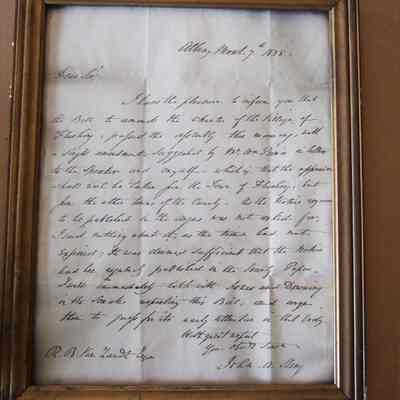 Albany March 7th 1838.
Dear Sir
I have the pleasure to inform you that
the Bill to amend the charter of the Village of
Flushing, passed the assembly this morning, with
a slight amendment suggested by Mr in a letter
to the Speaker and myself - which is that the
shall not be taken for the Town of Flushing, but
from the other towns of the County. As the Notice
to be published in the was not asked for,
I said nothing about it, as the time had not
expired; it was deemed sufficient that the Notice
had been regularly published in the County Paper.
I will immediately talk with and Downing
in the Senate respecting this Bill, and urge
them to press for its early attention in that body
With great respect
Your Obedt Servt
R. B. Van Zandt Esqr
John W.